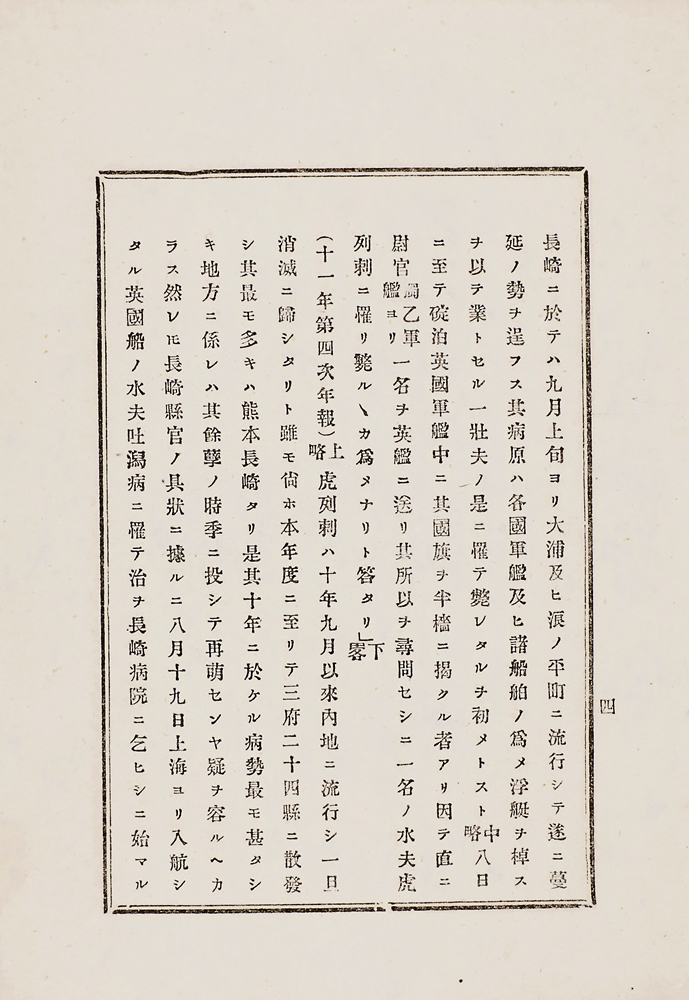 長崎ニ於テハ九月上旬ヨリ大浦及ヒ浪ノ平町ニ流行シテ遂ニ蔓
延ノ勢ヲ逞フス其病原ハ各國軍艦及ヒ諸船舶ノ爲メ浮艇ヲ棹ス
ヲ以テ業トセル一壯夫ノ是ニ罹テ斃レタルヲ初メトスト中略八日
ニ至テ碇泊英國軍艦中ニ其國旗ヲ半檣ニ揭タル者アリ因テ直ニ
尉官屬乙軍艦ヨリ一名ヲ英艦ニ送リ其所以ヲ尋問セシニ一名ノ水夫虎
列刺ニ罹リ斃ルヽカ爲メナリト答タリ」下畧
(十一年第四次年報)上略虎列刺ハ十年九月以來內地ニ流行シ一旦
消滅ニ歸シタリト雖モ尙ホ本年度ニ至リテ三府二十四縣ニ散發
シ其最モ多キハ熊本長崎タリ是其十年ニ於ケル病勢最モ甚タシ
キ地方ニ係レハ其餘孼ノ時季ニ投シテ再萌センヤ疑ヲ容ルヘカ
ラス然レ𪜈長崎縣官ノ具狀ニ據ルニ八月十九日上海ヨリ入航シ
タル英國船ノ水夫吐瀉病ニ罹テ治ヲ長崎病院ニ乞ヒシニ始マル
四